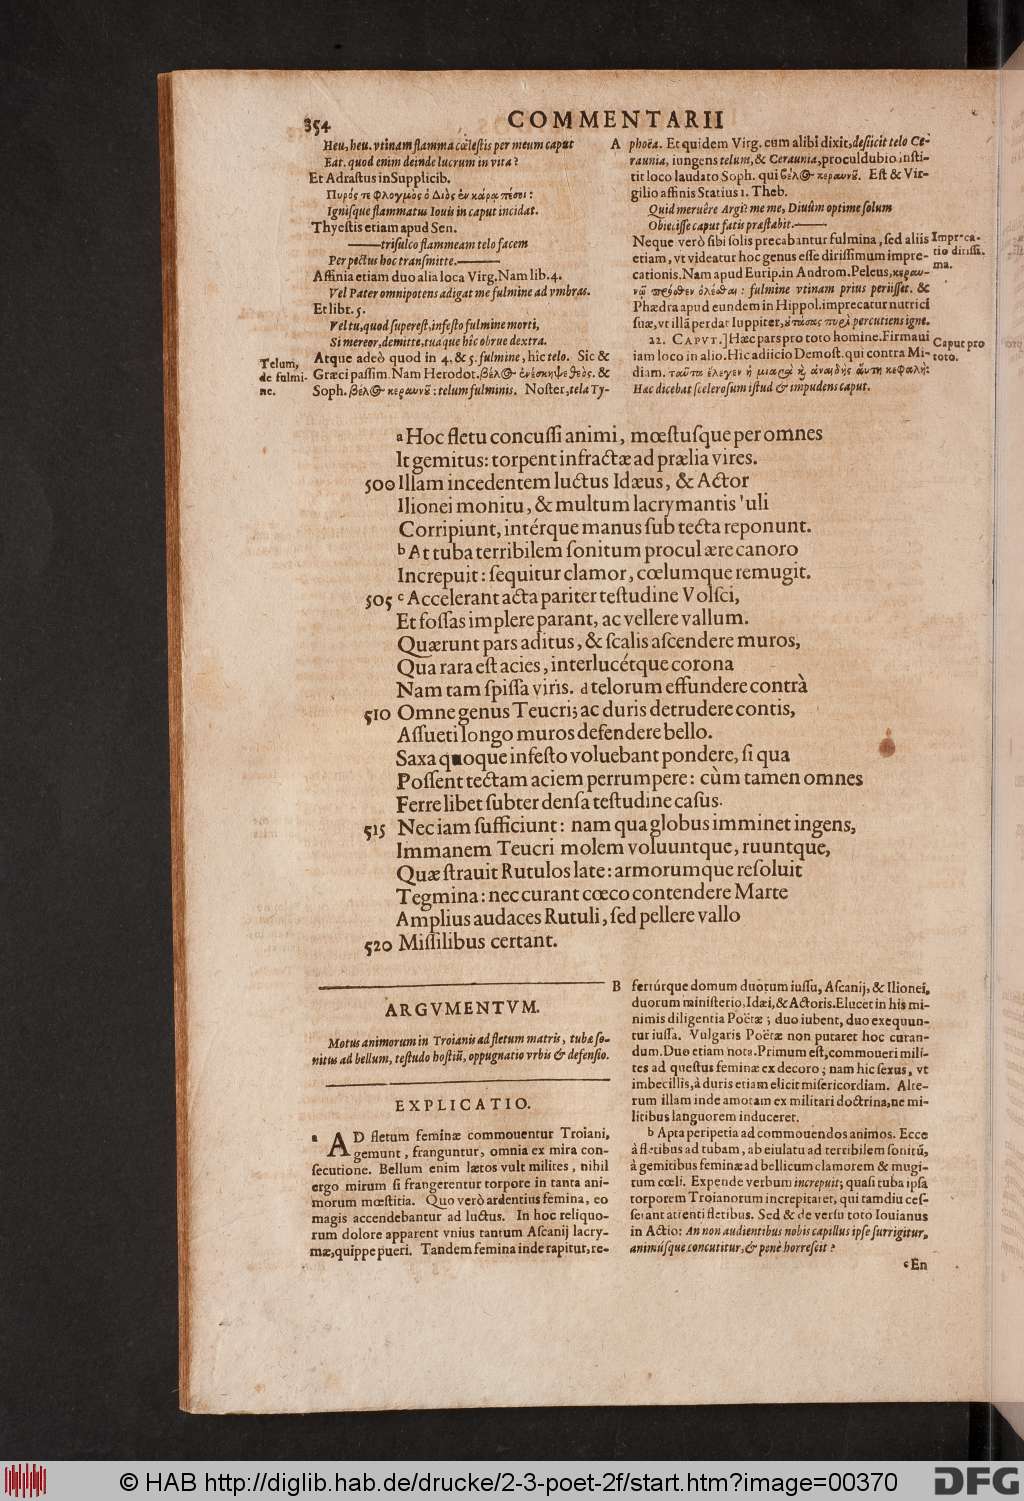 354
COMMENTARII
Heu, heu. vtinam flamma cœlestis per meum caput
Eat. quod enim deinde lucrum in vita?
Et Adrastus in Supplicib.
Πυρός τε φλογμὸς ὁ Διὸς ἐν κάρᾳ πέσοι:
Ignisque flammatus Iouis in caput incidat.
Thyestis etiam apud Sen.
——trisulco flammeam telo facem
Per pectus hoc transmitte.——
Affinia etiam duo alia loca Virg. Nam lib. 4.
Vel Pater omnipotens adigat me fulmine ad vmbras.
Et libr. 5.
Vel tu, quod superest, infesto fulmine morti,
Si mereor, demitte, tuaque hic obrue dextra.
Telum,
de fulmi-
ne.
Atque adeò quod in 4. & 5. fulmine, hic telo. Sic &
Græci passim. Nam Herodot. βέλος ἐνέσκηψε θεός. &
Soph. βέλος κεραυνοῦ: telum fulminis. Noster, tela Ty-
A phoëa. Et quidem Virg. cum alibi dixit, desiicit telo Ce-
raunia, iungens telum, & Ceraunia, proculdubio insti-
tit loco laudato Soph. qui βέλος κεραυνοῦ. Est & Vir-
gilio affinis Statius 1. Theb.
Quid meruêre Argi? me me, Diuûm optime solum
Obiecisse caput fatis præstabit.——
Neque verò sibi solis precabantur fulmina, sed aliis
etiam, vt videatur hoc genus esse dirissimum impre-
cationis. Nam apud Eurip. in Androm. Peleus, κεραυ-
νῷ πρόσθεν ὀλέσθαι: fulmine vtinam prius periisset. &
Phædra apud eundem in Hippol. imprecatur nutrici
suæ, vt illã perdat Iuppiter, οὐτάσας πυρὶ percutiens igne.
22. CAPVT.] Hæc pars pro toto homine. Firmaui
iam loco in alio. Hic adiicio Demost. qui contra Mi-
diam. ταῦτα ἔλεγεν ἡ μιαρὰ καὶ ἀναιδὴς αὕτη κεφαλή:
Hac dicebat scelerosum istud & impudens caput.
Impreca-
tio dirissi-
ma.
Caput pro
toto.
a Hoc fletu concussi animi, mœstusque per omnes
It gemitus: torpent infractæ ad prælia vires.
500 Illam incedentem luctus Idæus, & Actor
Ilionei monitu, & multum lacrymantis 'uli
Corripiunt, intérque manus sub tecta reponunt.
b At tuba terribilem sonitum procul ære canoro
Increpuit: sequitur clamor, cœlumque remugit.
505 c Accelerant acta pariter testudine Volsci,
Et fossas implere parant, ac vellere vallum.
Quærunt pars aditus, & scalis ascendere muros,
Qua rara est acies, interlucétque corona
Nam tam spissa viris. d telorum effundere contrà
510 Omne genus Teucri; ac duris detrudere contis,
Assueti longo muros defendere bello.
Saxa quoque infesto voluebant pondere, si qua
Possent tectam aciem perrumpere: cùm tamen omnes
Ferre libet subter densa testudine casus.
515 Nec iam sufficiunt: nam qua globus imminet ingens,
Immanem Teucri molem voluuntque, ruuntque,
Quæ strauit Rutulos late: armorumque resoluit
Tegmina: nec curant cœco contendere Marte
Amplius audaces Rutuli, sed pellere vallo
520 Missilibus certant.
ARGVMENTVM.
Motus animorum in Troianis ad fletum matris, tubæ so-
nitus ad bellum, testudo hostiũ, oppugnatio vrbis & defensio.
EXPLICATIO.
a AD fletum feminæ commouentur Troiani,
gemunt, franguntur, omnia ex mira con-
secutione. Bellum enim lætos vult milites, nihil
ergo mirum si frangerentur torpore in tanta ani-
morum mœstitia. Quo verò ardentius femina, eo
magis accendebantur ad luctus. In hoc reliquo-
rum dolore apparent vnius tantum Ascanij lacry-
mæ, quippe pueri. Tandem femina inde rapitur, re-
B fertúrque domum duorum iussu, Ascanij, & Ilionei,
duorum ministerio, Idæi, & Actoris. Elucet in his mi-
nimis diligentia Poëtæ; duo iubent, duo exequun-
tur iussa. Vulgaris Poëta non putaret hoc curan-
dum. Duo etiam nota. Primum est, commoueri mili-
tes ad questus feminæ ex decoro; nam hic sexus, vt
imbecillis, à duris etiam elicit misericordiam. Alte-
rum illam inde amotam ex militari doctrina, ne mi-
litibus languorem induceret.
b Apta peripetia ad commouendos animos. Ecce
à fletibus ad tubam, ab eiulatu ad terribilem sonitũ,
à gemitibus feminæ ad bellicum clamorem & mugi-
tum cœli. Expende verbum increpuit; quasi tuba ipsa
torporem Troianorum increpitaret, qui tamdiu ces-
serant attenti fletibus. Sed & de versu toto Iouianus
in Actio: An non audientibus nobis capillus ipse surrigitur,
animúsque concutitur, & penè horrescit?
c En
© HAB http://diglib.hab.de/drucke/2-3-poet-2f/start.htm?image=00370
DFG